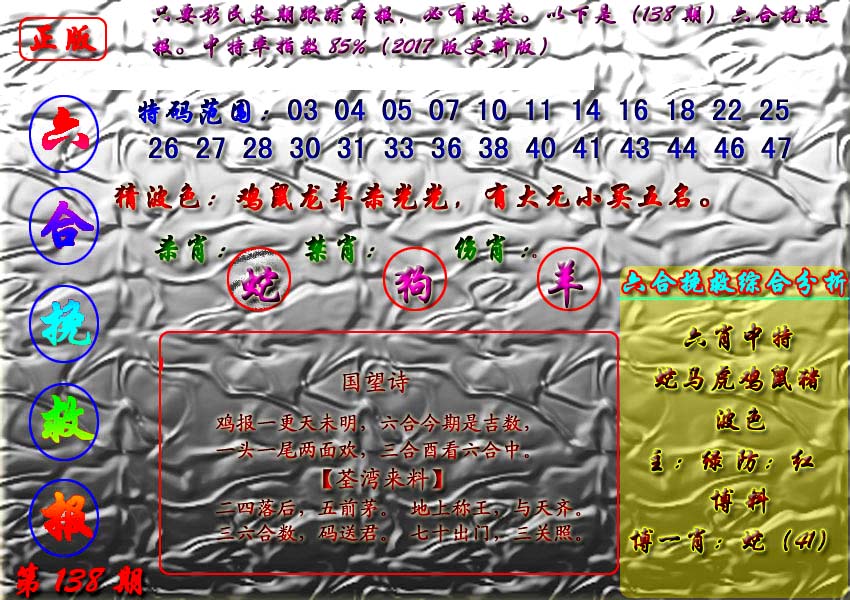 正版
只要彩民长期跟踪本报，必有收获。以下是（138期）六合挽救
报。中特率指数85%（2017版更新版）
六合挽救报
特码范围：03 04 05 07 10 11 14 16 18 22 25
26 27 28 30 31 33 36 38 40 41 43 44 46 47
猜波色：鸡鼠龙羊杀光光，有大无小买五名。
杀肖：蛇 禁肖：狗 伤肖：羊
国望诗
鸡报一更天未明，六合今期是吉数，
一头一尾两面欢，三合酉看六合中。
【荃湾来料】
二四落后，五前茅。 地上称王，与天齐。
三六合数，码送君。 七十出门，三关照。
六合挽救综合分析
六肖中特
蛇马虎鸡鼠猪
波色
主：绿 防：红
博料
博一肖：蛇（41）
第138期